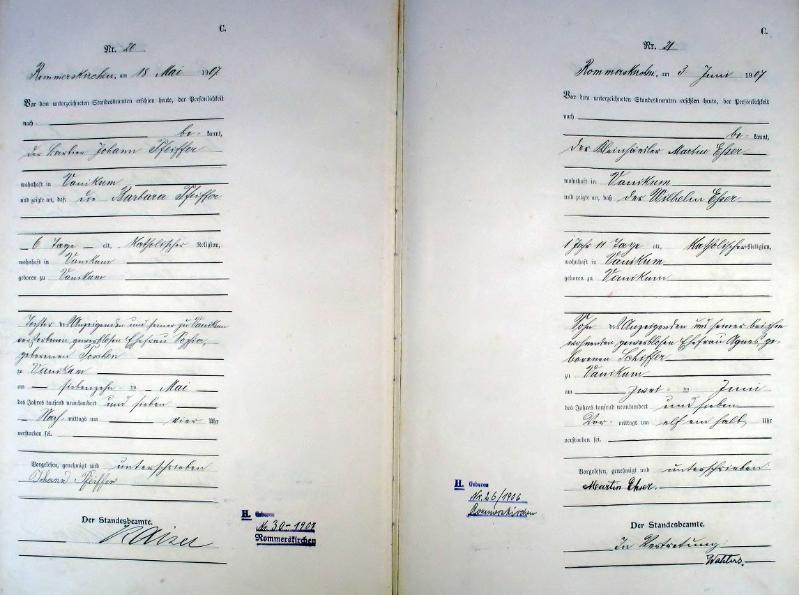 C.
Nr. 20
Rommerskirchen, am 18 Mai 1907
Vor dem unterzeichneten Standesbeamten erschien heute, der Persönlichkeit
nach
be- kannt,
der Johann Pfeiffer
wohnhaft in Vanikum
und zeigte an, daß die Barbara Pfeiffer
6 Tage alt, Katholischer Religion,
wohnhaft in Vanikum
geboren zu Vanikum
Tochter des Anzeigenden und seiner zu Vanikum
verstorbenen gewerblosen Ehefrau Sofia,
geborenen
zu Vanikum
am siebenzehn ten Mai
des Jahres tausend neunhundert und sieben
Nach- mittags um vier Uhr
verstorben sei.
Vorgelesen, genehmigt und unterschrieben
Johann Pfeiffer
Der Standesbeamte.
Kaiser
H. Geboren
Nr. 30-1907
Rommerskirchen
C.
Nr. 21
Rommerskirchen, am 3 Juni 1907
Vor dem unterzeichneten Standesbeamten erschien heute, der Persönlichkeit
nach
be- kannt,
der Kleinhändler Martin Esser
wohnhaft in Vanikum
und zeigte an, daß der Wilhelm Esser
1 Jahr 11 Tage alt, Katholischer Religion,
wohnhaft in Vanikum
geboren zu Vanikum
Sohn des Anzeigenden und seiner bei ihm
wohnenden gewerblosen Ehefrau Agnes, ge-
borenen Schiffer
zu Vanikum
am zwei ten Juni
des Jahres tausend neunhundert und sieben
Vor- mittags um elf ein halb Uhr
verstorben sei.
Vorgelesen, genehmigt und unterschrieben
Martin Esser.
Der Standesbeamte.
In Vertretung
Wahlers.
H. Geboren
Nr. 26/1906
Rommerskirchen